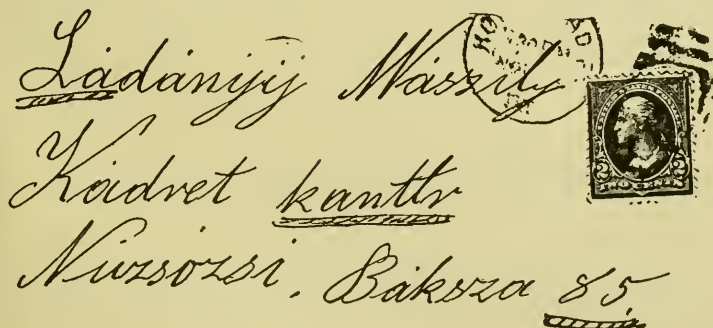 Ládányij Mászily
Kádvet kanttr
Núzsózsi. Báksza 85